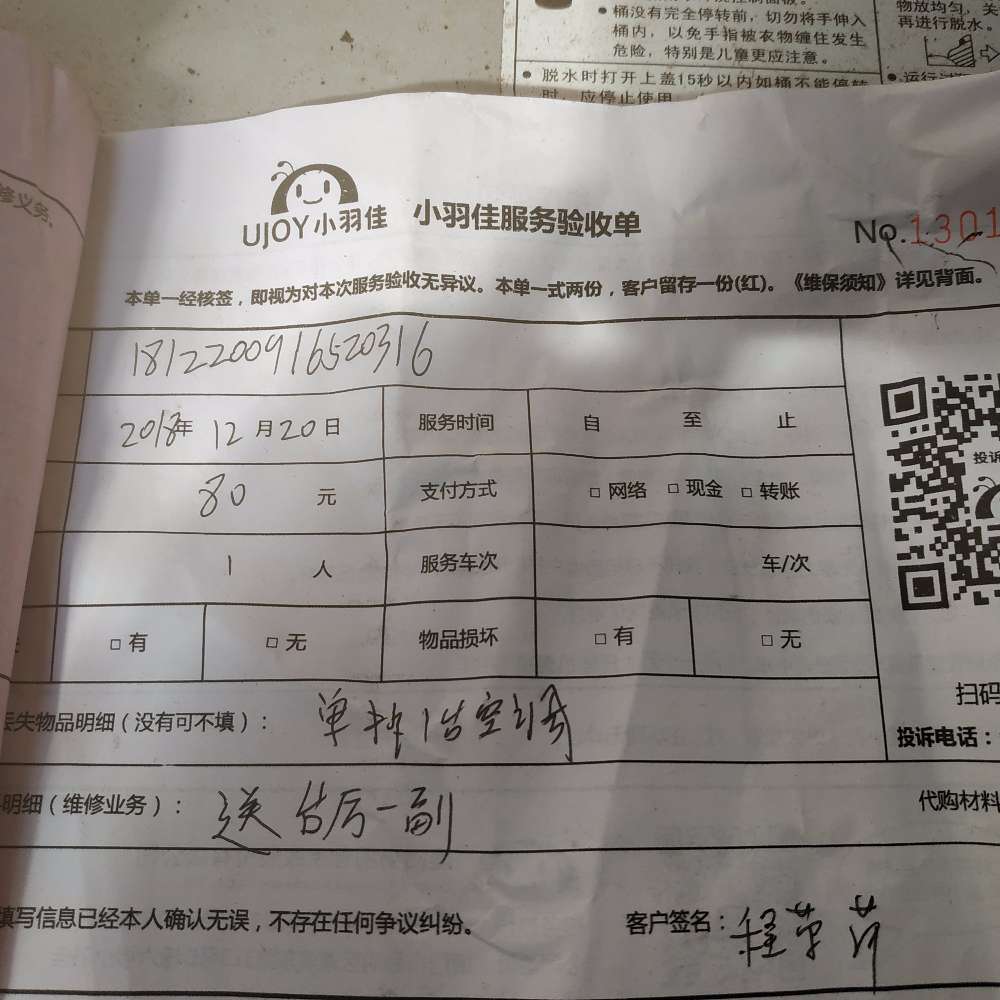 桶没有完全停转前，切勿将手伸入
桶内，以免手指被衣物缠住发生
危险，特别是儿童更应注意。
脱水时打开上盖15秒以内如桶不能停转
时，应停止使用
物放均匀，关
再进行脱水。
修义务。
UJOY小羽佳 小羽佳服务验收单
No.1301
本单一经核签，即视为对本次服务验收无异议。本单一式两份，客户留存一份(红)。《维保须知》详见背面。
1812200916520316
2018年 12月20日 服务时间 自 至 止
80 元 支付方式 □ 网络 □ 现金 □ 转账
1 人 服务车次 车/次
□ 有 □ 无 物品损坏 □ 有 □ 无
投诉
扫码
投诉电话：
丢失物品明细（没有可不填）： 单拆1台空调
明细（维修业务）： 送 一副
代购材料
填写信息已经本人确认无误，不存在任何争议纠纷。
客户签名：